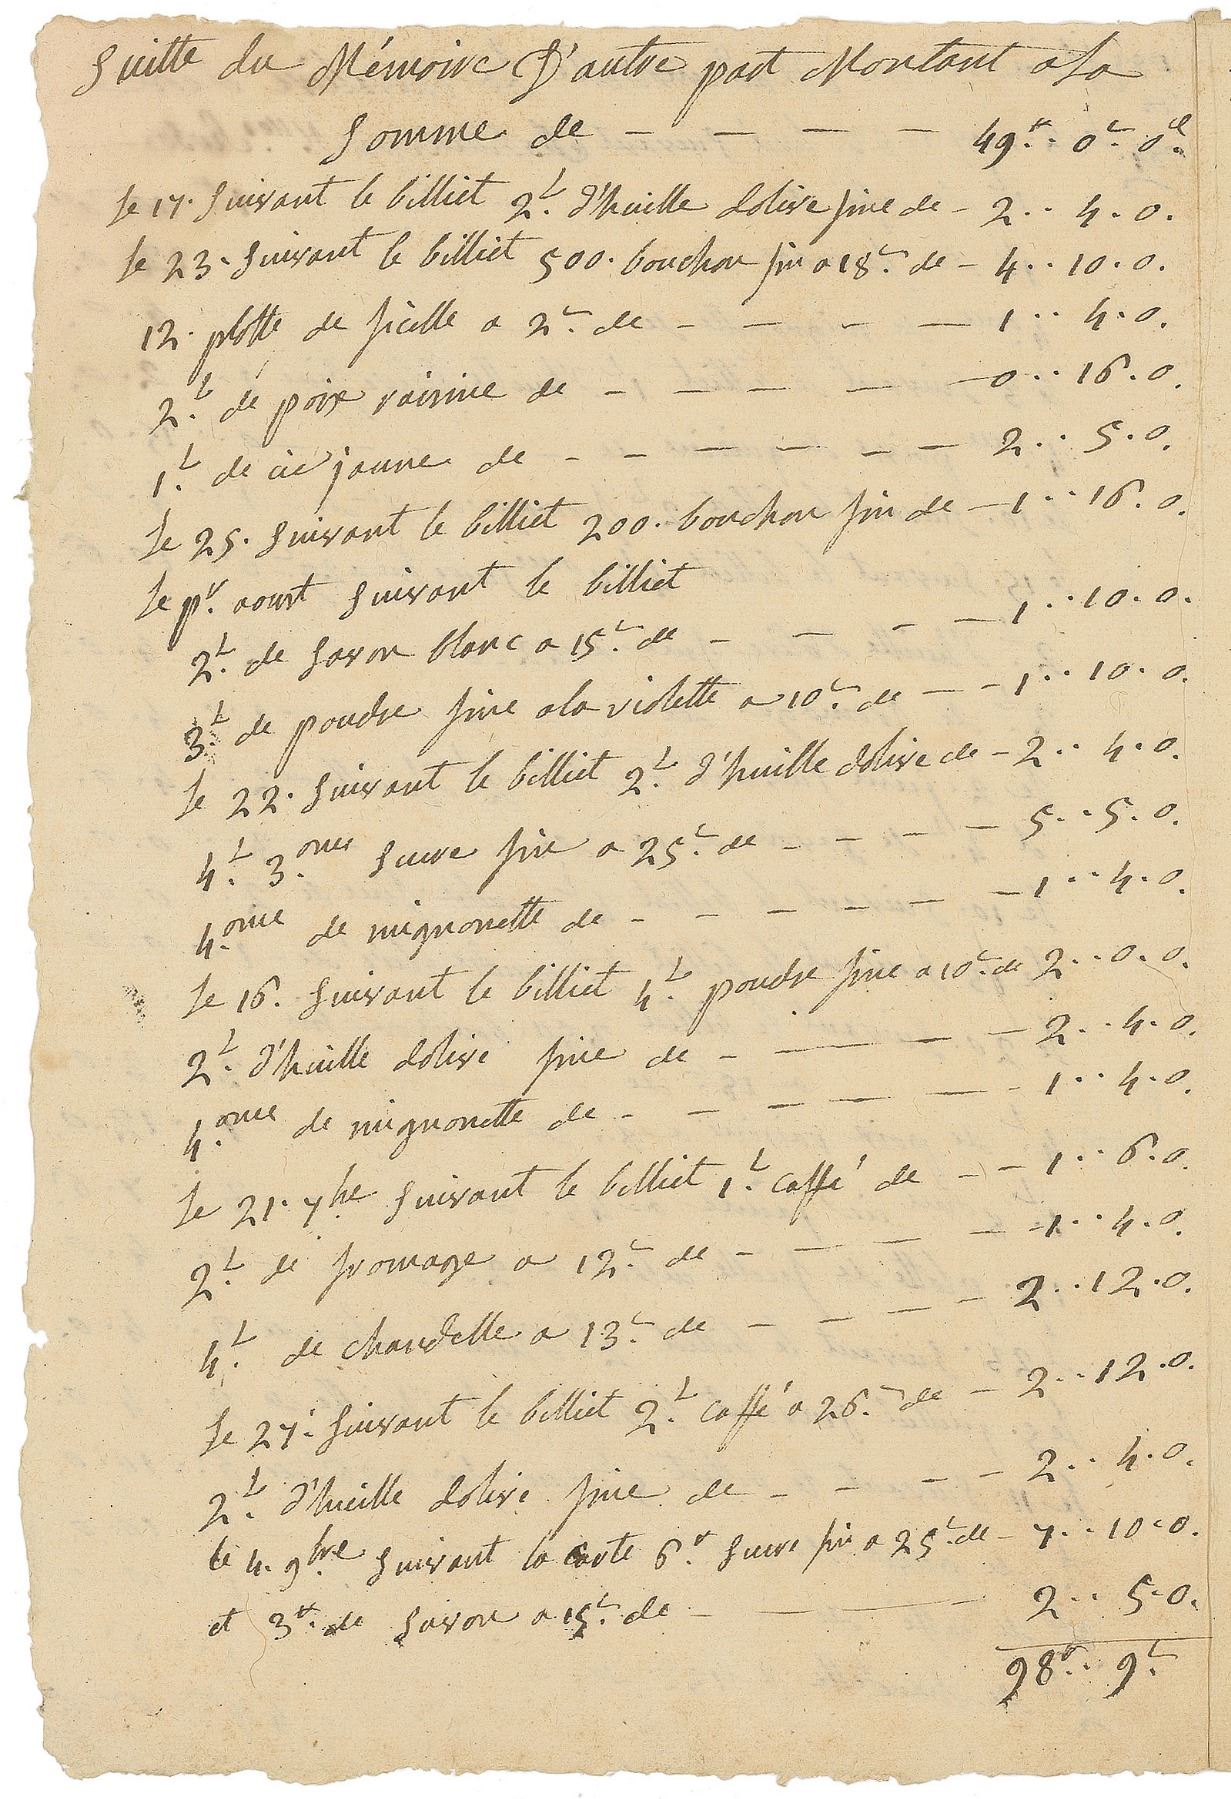 Suitte du Mémoire D'autre part Montant ala
Somme de - - - - 49tt.. 0s. 0d.
le 17. Suivant le billiet 2.L d'huille dolive fine de - 2.. 4. 0.
le 23. Suivant le billiet 500. bouchon fin a 18s. de - 4.. 10. 0.
12. plotte de ficelle a 2s. de - - - - 1.. 4. 0.
2.L de poix raisine de - - - - - 0.. 16. 0.
1.L de cie jaune de - - - - - - 2.. 5. 0.
le 25. Suivant le billiet 200. bouchon fin de - 1.. 16. 0.
le pr. aoust Suivant le billiet
2.L de Savon blanc a 15s. de - - - - 1.. 10. 0.
3.L de poudre fine ala violette a 10s. de - - 1.. 10. 0.
le 22. Suivant le billiet 2.L d'huille dolive de - 2.. 4. 0.
4.L 3.onces Sucre fin a 25s. de - - - - 5.. 5. 0.
4.once de mignonette de - - - - - - 1.. 4. 0.
le 16. Suivant le billiet 4.L poudre fine a 10s. de 2.. 0. 0.
2.L d'huille dolive fine de - - - - 2.. 4. 0.
4.once de mignonette de - - - - - - 1.. 4. 0.
le 21. 7bre Suivant le billiet 1.L caffé de - - 1.. 6. 0.
2.L de fromage a 12s. de - - - - - 1.. 4. 0.
4.L de chandelle a 13s. de - - - - 2.. 12. 0.
le 27. Suivant le billiet 2.L caffé a 26s. de - 2.. 12. 0.
2.L d'huille dolive fine de - - - - 2.. 4. 0.
le 4. 9bre Suivant la carte 6tt Sucre fin a 25s. de - 7.. 10. 0.
et 3tt. de Savon a 15s. de - - - - 2.. 5. 0.
98tt.. 9s.